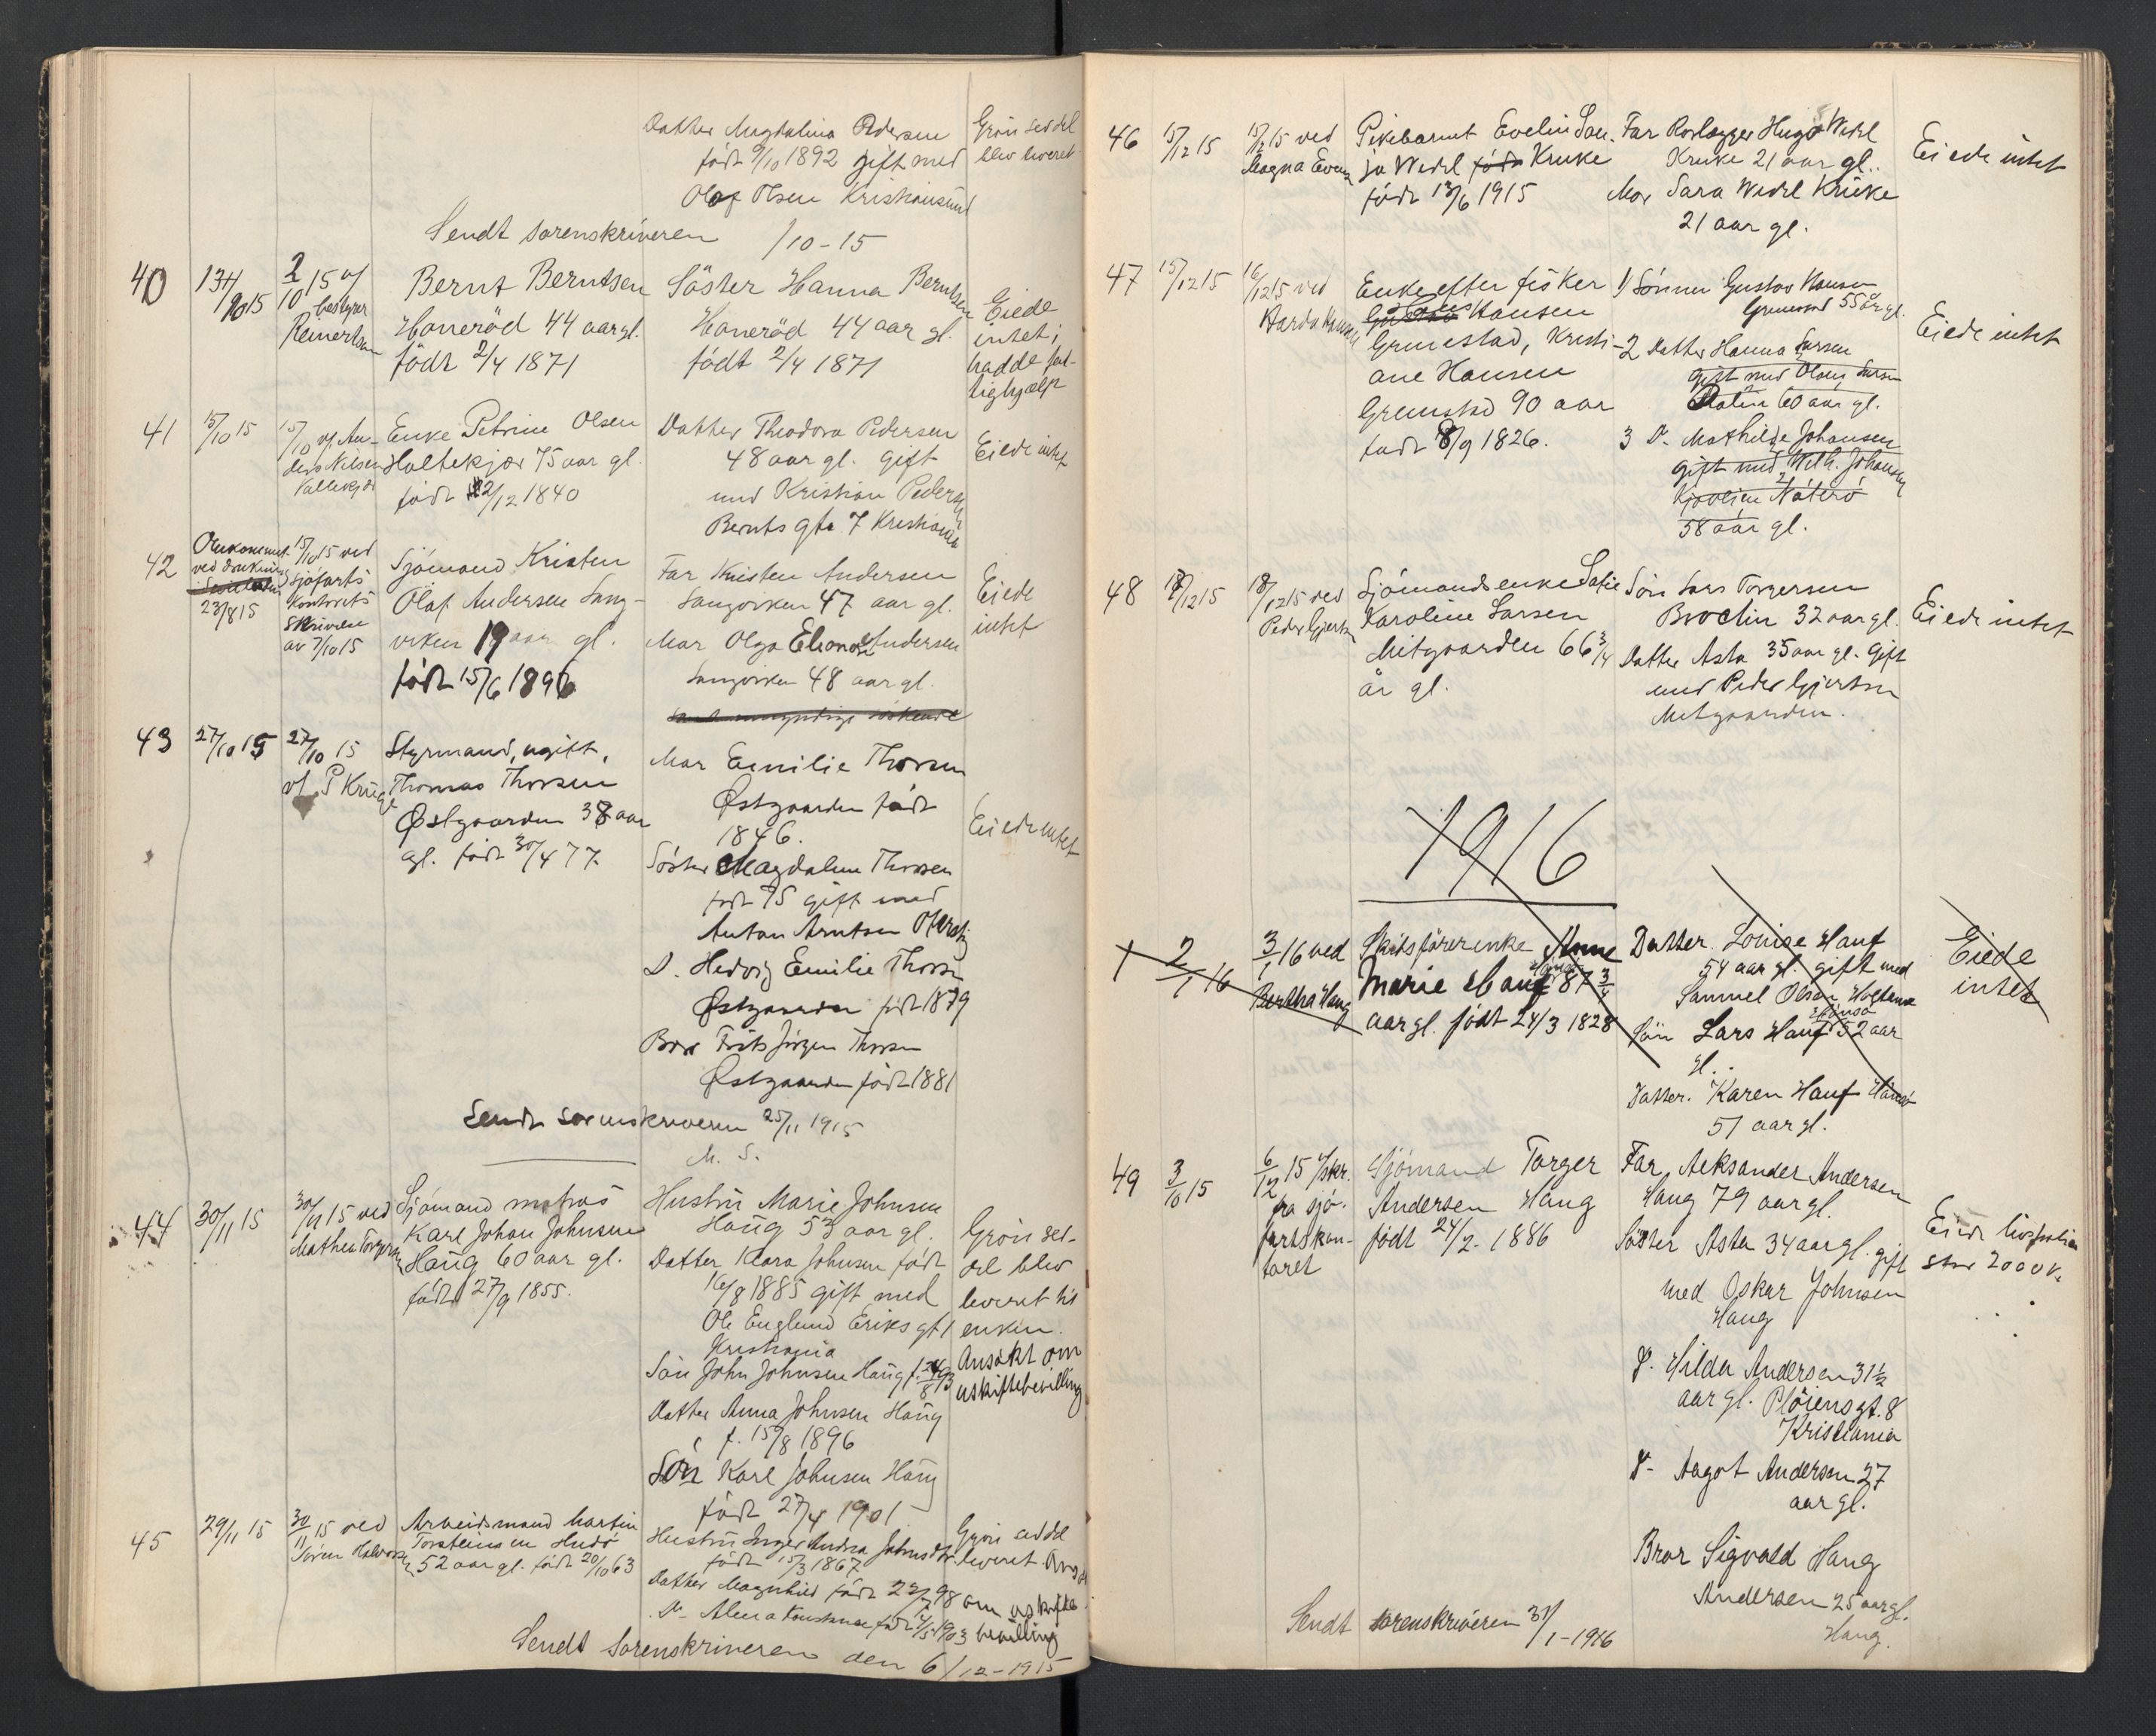 Datter Magdalina Pedersen
født 9/10 1892 gift med
Olaf Olsen Kristiansund
Grön seddel
blev leveret
Sendt sorenskriveren /10-15
40
13/10 15
2/10 15 v/
bestyrer
Reinertsen
Bernt Berntsen
Haneröd 44 aar gl.
född 2/4 1871
Söster Hanna Berntsen
Haneröd 44 aar gl.
född 2/4 1871
Eiede
intet;
hadde fat-
tighjælp
41
15/10 15
15/10 v/ An-
ders Nilsen
Enke Petrine Olsen
Holtekjær 75 aar gl.
född 2/12 1840
Datter Theodora Pedersen
48 aar gl. gift
med Kristian Pedersen
Bernts gt. 7 Kristiania
Eiede intet
42
Omkommet
ved drukning
23/8 15
15/10 15 ved
sjöfarts
kontorets
skrivelse
av 7/10 15
Sjömand Kristen
Olaf Andersen Sang-
viken 19 aar gl.
född 15/6 1896
Far Kristen Andersen
Sangviken 47 aar gl.
Mor Olga Eleonore Andersen
Sangviken 48 aar gl.
Eiede
intet
43
27/10 15
27/10 15
v/ P Krüge
Styrmand, ugift,
Thomas Thorsen
Østgaarden 38 aar
gl. född 30/4 77
Mor Emilie Thorsen
Østgaarden född
1846.
Söster Magdalene Thorsen
född 75 gift med
Anton Arntsen
D. Hedvig Emilie Thorsen
Østgaarden född 1879
Bror Frits Jörgen Thorsen
Østgaarden född 1881
Eiede intet
Sendt sorenskriveren 25/11 1915
M. S.
44
30/11 15
30/11 15 ved
Mathea Torgersen
Sjömand matros
Karl Johan Johnsen
Haug 60 aar gl.
född 27/9 1855.
Hustru Marie Johnsen
Haug 53 aar gl.
Datter Klara Johnsen född
16/8 1885 gift med
Ole Englund Eriks gt 1
Kristiania
Sön John Johnsen Haug
Datter Anna Johnsen Haug
f. 15/8 1896
Sön Karl Johnsen Haug
född 27/4 1901
Grön sed-
del blev
leveret til
enken.
Ansökt om
uskiftebevilling
45
29/11 15
30/11 15 ved
Sören Halvorsen
Arbeidsmand Martin
Torsteinsen Hudö
52 aar gl. född 20/10 63
Hustru Inger Andrea Johnsdtr.
född 15/3 1867
Datter Magnhild född 98
D- Alma Konstanse 1903
Grön seddel
leveret. Ansökt
om uskifte
bevilling
Sendt Sorenskriveren den 6/12-1915
46
15/12 15
15/12 15 ved
Magna Evensen
Pikebarnet Evelin San-
ja Wedel födt Kruke
född 13/6 1915
Far Rorlægger Hugo Wedel
Kruke 21 aar gl.
Mor Sara Wedel Kruke
21 aar gl.
Eiede intet
47
15/12 15
16/12 15 ved
Enke efter fisker
Gustav Hansen
Grimestad, Kristi-
ane Hansen
Grimestad 90 aar
född 8/9 1826.
1/ Sönnen Gustav Hansen
Grimestad 55 år gl.
2 Datter Hanna Larsen
gift med Olaus Larsen
60 aar gl.
3 D. Mathilde Johansen
gift med Wilh. Johansen
Nöterö
58 aar gl.
Eiede intet
48
18/12 15
18/12 15 ved
Peder Gjertsen
Sjömandsenke Sofie
Karoline Larsen
Mitgaarden 66 3/4
år gl.
Sön Lars Torgersen
32 aar gl.
Datter Asta 35 aar gl. gift
med Peder Gjertsen
Mitgaarden.
Eiede intet
1916
1
2/1 16
3/1 16 ved
Bertha Haug
Skibsförerenke Anne
Marie Hauf 87 3/4
aar gl. född 24/3 1828
Datter. Louise Hauf
54 aar gl. gift med
Samuel Olsen
Sön Lars Hauf 52 aar
gl.
Datter. Karen Hauf
51 aar gl.
Eiede
intet
49
3/10 15
6/12 15 v/skr.
fra sjö-
fartskon-
toret
Sjömand Torger
Andersen Haug
född 24/2- 1886
Far, Aleksander Andersen
Haug 79 aar gl.
Söster Asta 34 aar gl. gift
med Oskar Johnsen
Haug
D. Hilda Andersen 31 1/2
aar gl. Plöiens gt. 8
Kristiania
D- Aagot Andersen 27
aar gl.
Bror Sigvald Haug
Andersen 25 aar gl.
Haug.
Eiede
stor 2000 kr
Sendt sorenskriveren 31/1-1916